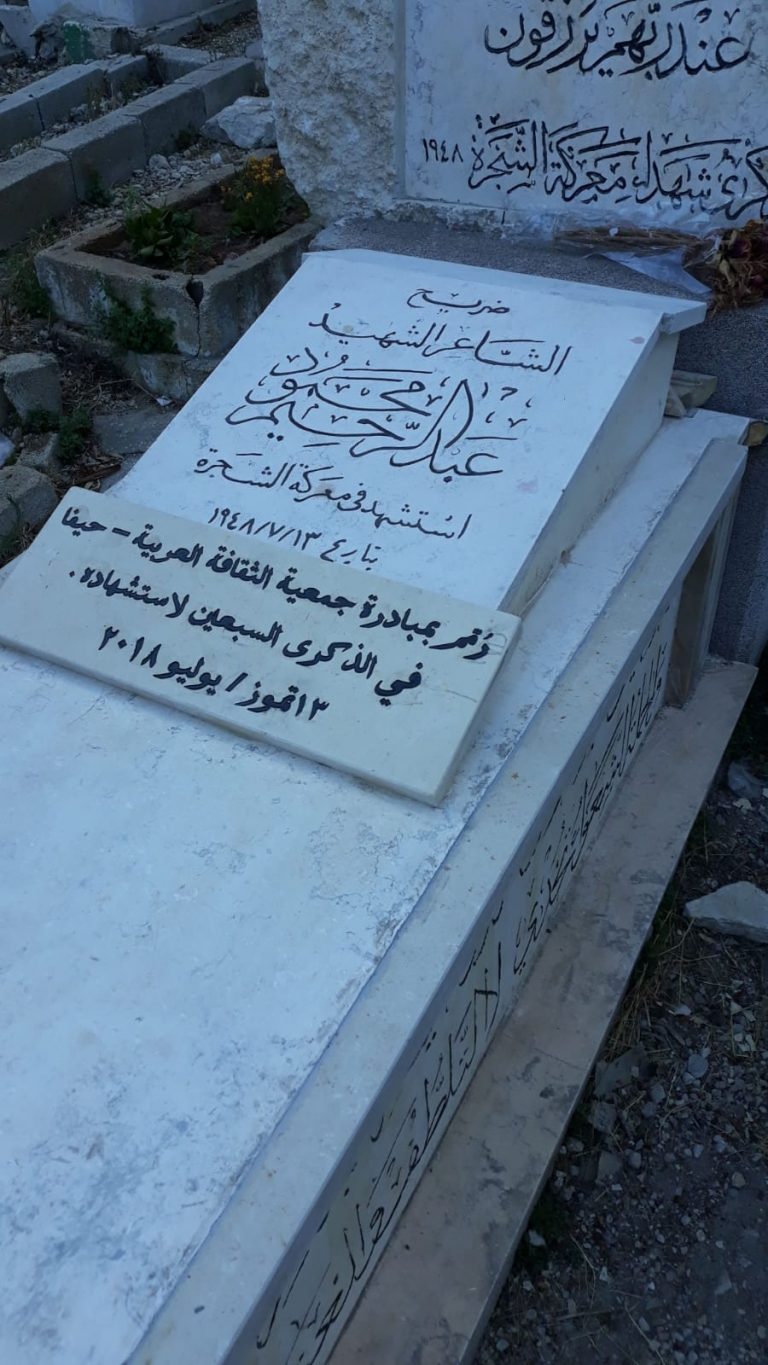 عند ربهم يرزقون
شهداء معركة الشجرة ١٩٤٨
ضريح
الشاعر الشهيد
عبد الرحيم محمود
استشهد في معركة الشجرة
بتاريخ ١٣/٧/١٩٤٨
رُمّم بمبادرة جمعية الثقافة العربية - حيفا
في الذكرى السبعين لاستشهاده.
١٣ تموز/يوليو ٢٠١٨